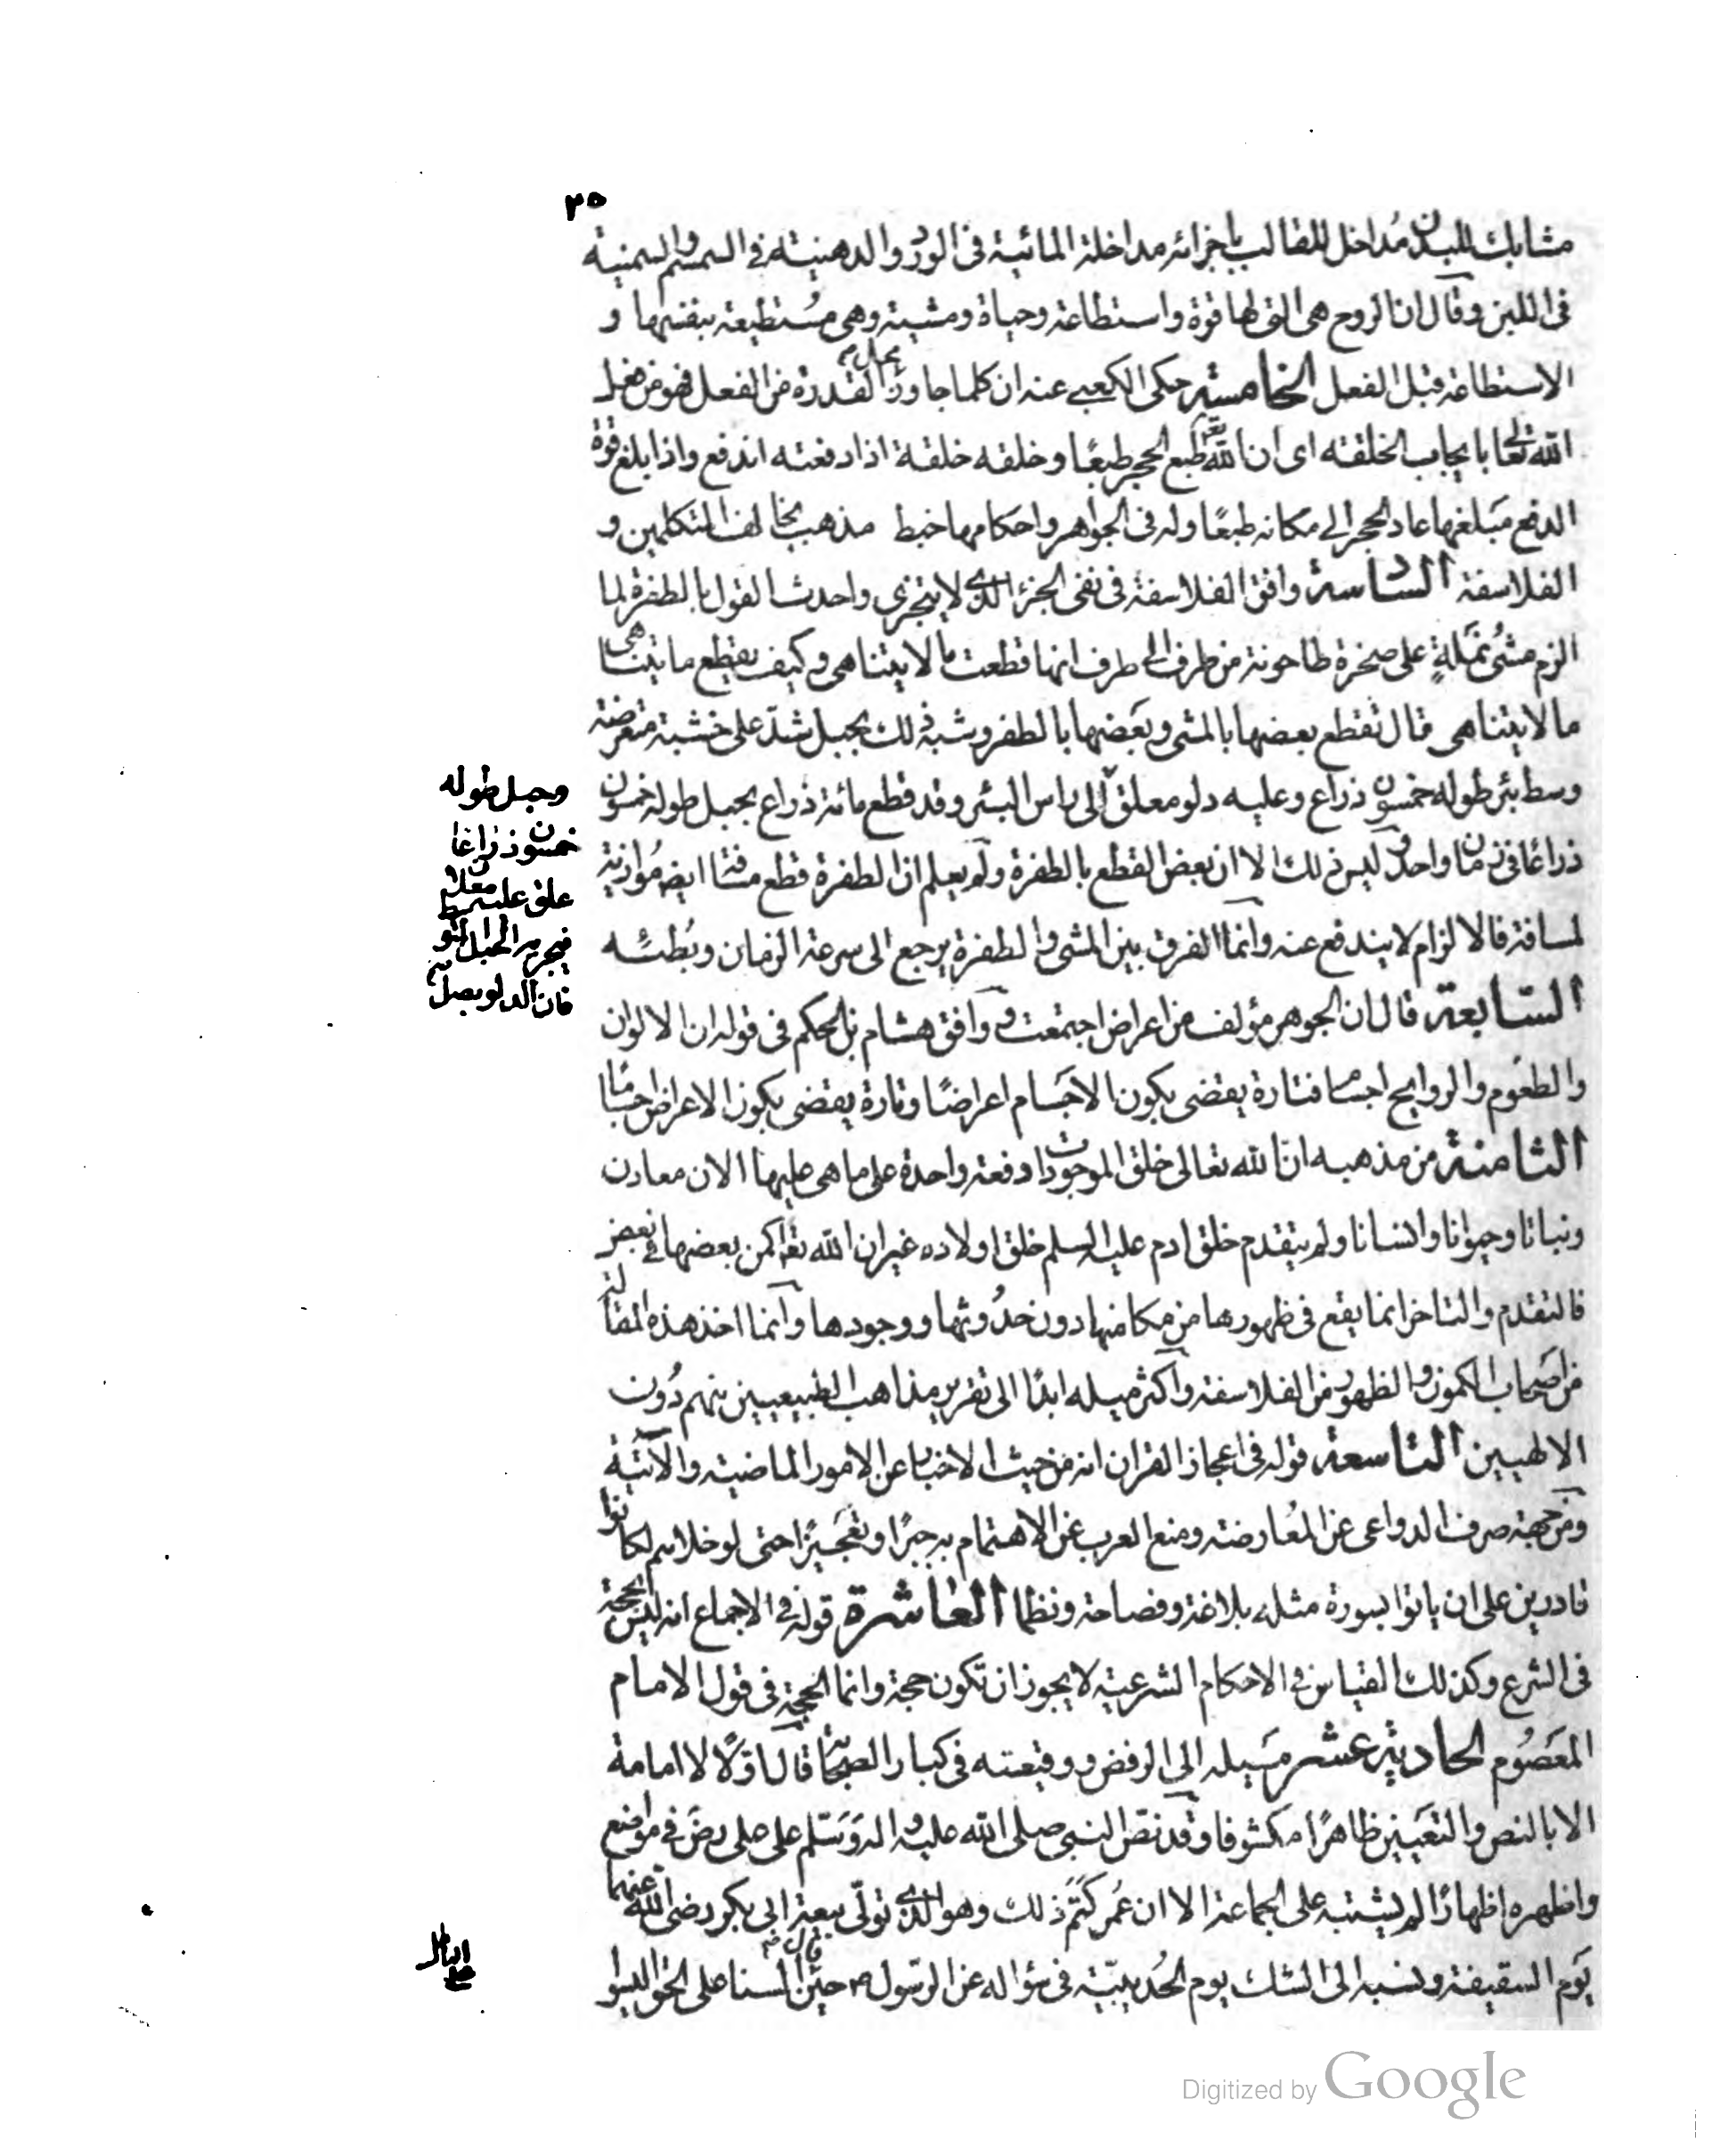 ٣٥
مشابك للبدن مُداخل للقالب باجزائه مداخلة المائية فى الورد والدهنية فى السمسم والسمنية
فى اللبن وقال ان الروح هى التى لها قوة واستطاعة وحياة ومشية وهى مُستطيعة بنفسها و
الاستطاعة قبل الفعل الخامسة حكى الكعبى عنه ان كلما جاوز محال القدرة من الفعل فهو من فعل
الله تعالى بايجاب الخلقة اى ان الله تعالى طبع الحجر طبعًا وخلقه خلقة اذا دفعته اندفع واذا بلغ قوة
الدفع مبلغها عاد الحجر الى مكانه طبعًا وله فى الجواهر واحكامها خبط مذهب يخالف المتكلمين و
الفلاسفة السادسة وافق الفلاسفة فى نفى الجزء الذى لا يتجزى واحدث القول بالطفرة لما
الزم مشى نملةٍ على صخرة طاحونة من طرف الى طرف انها قطعت ما لا يتناهى وكيف يقطع ما يتناهى
ما لا يتناهى قال تقطع بعضها بالمشى وبعضها بالطفر وشبه ذلك بحبل شدّ على خشبة متعرضة
وسط بئر طوله خمسون ذراع وعليه دلو معلق الى راس البئر وقد قطع مائة ذراع بحبل طوله خمسون
وحبل طوله
خمسون ذراعًا
علق عليه معلاق
فيجر به الحبل المتو
فان الدلو يصل
ذراعًا فى زمان واحد وليس ذلك الا ان بعض القطع بالطفرة ولم يعلم ان الطفرة قطع مسافة ايضا موازية
لمسافة فالالزام لا يندفع عنه وانما الفرق بين المشى والطفرة يرجع الى سرعة الزمان وبُطئه
السابعة قال ان الجوهر مؤلف من اعراض اجتمعت ووافق هشام بن الحكم فى قوله ان الالوان
والطعوم والروايح اجسام فتارة يقضى بكون الاجسام اعراضًا وتارة يقضى بكون الاعراض اجسامًا
الثامنة من مذهبه ان الله تعالى خلق الموجودات دفعة واحدة على ما هى عليها الان معادن
ونباتا وحيوانا وانسانا ولم يتقدم خلق ادم عليه السلم خلق اولاده غير ان الله تعالى اكمن بعضها فى بعض
فالتقدم والتاخر انما يقع فى ظهورها من مكامنها دون حدُوثها ووجودها وانما اخذ هذه المقالة
من اصحاب الكمون والظهور من الفلاسفة واكثر ميله ابدًا الى تقرير مذاهب الطبيعيين منهم دُون
الالهيين التاسعة قوله فى اعجاز القران انه من حيث الاخبار عن الامور الماضية والآتية
ومن جهة صرف الدواعى عن المعارضة ومنع العرب عن الاهتمام به جبرًا وتعجيزًا حتى لو خلاهم لكانوا
قادرين على ان ياتوا بسورة مثله بلاغة وفصاحة ونظما العاشرة قوله فى الاجماع انه ليس بحجة
فى الشرع وكذلك القياس فى الاحكام الشرعية لا يجوز ان تكون حجة وانما الحجة فى قول الامام
المعصُوم الحادية عشر ميله الى الرفض ووقيعته فى كبار الصحابة قال اوّلًا لا امامة
الا بالنص والتعيين ظاهرًا مكشوفا وقد نصّ النبى صلى الله عليه واله وَسلم على على رضَ فى مواضع
واظهره اظهارًا لم يشتبه على الجماعة الا ان عُمر كتَم ذلك وهو الذى تولّى بيعة ابى بكر رضى الله عنهما
يَوم السقيفة ونسبه الى الشك يوم الحُديبيّة فى سؤاله عن الرسول ص حين قال السنا على الحق اليسوا